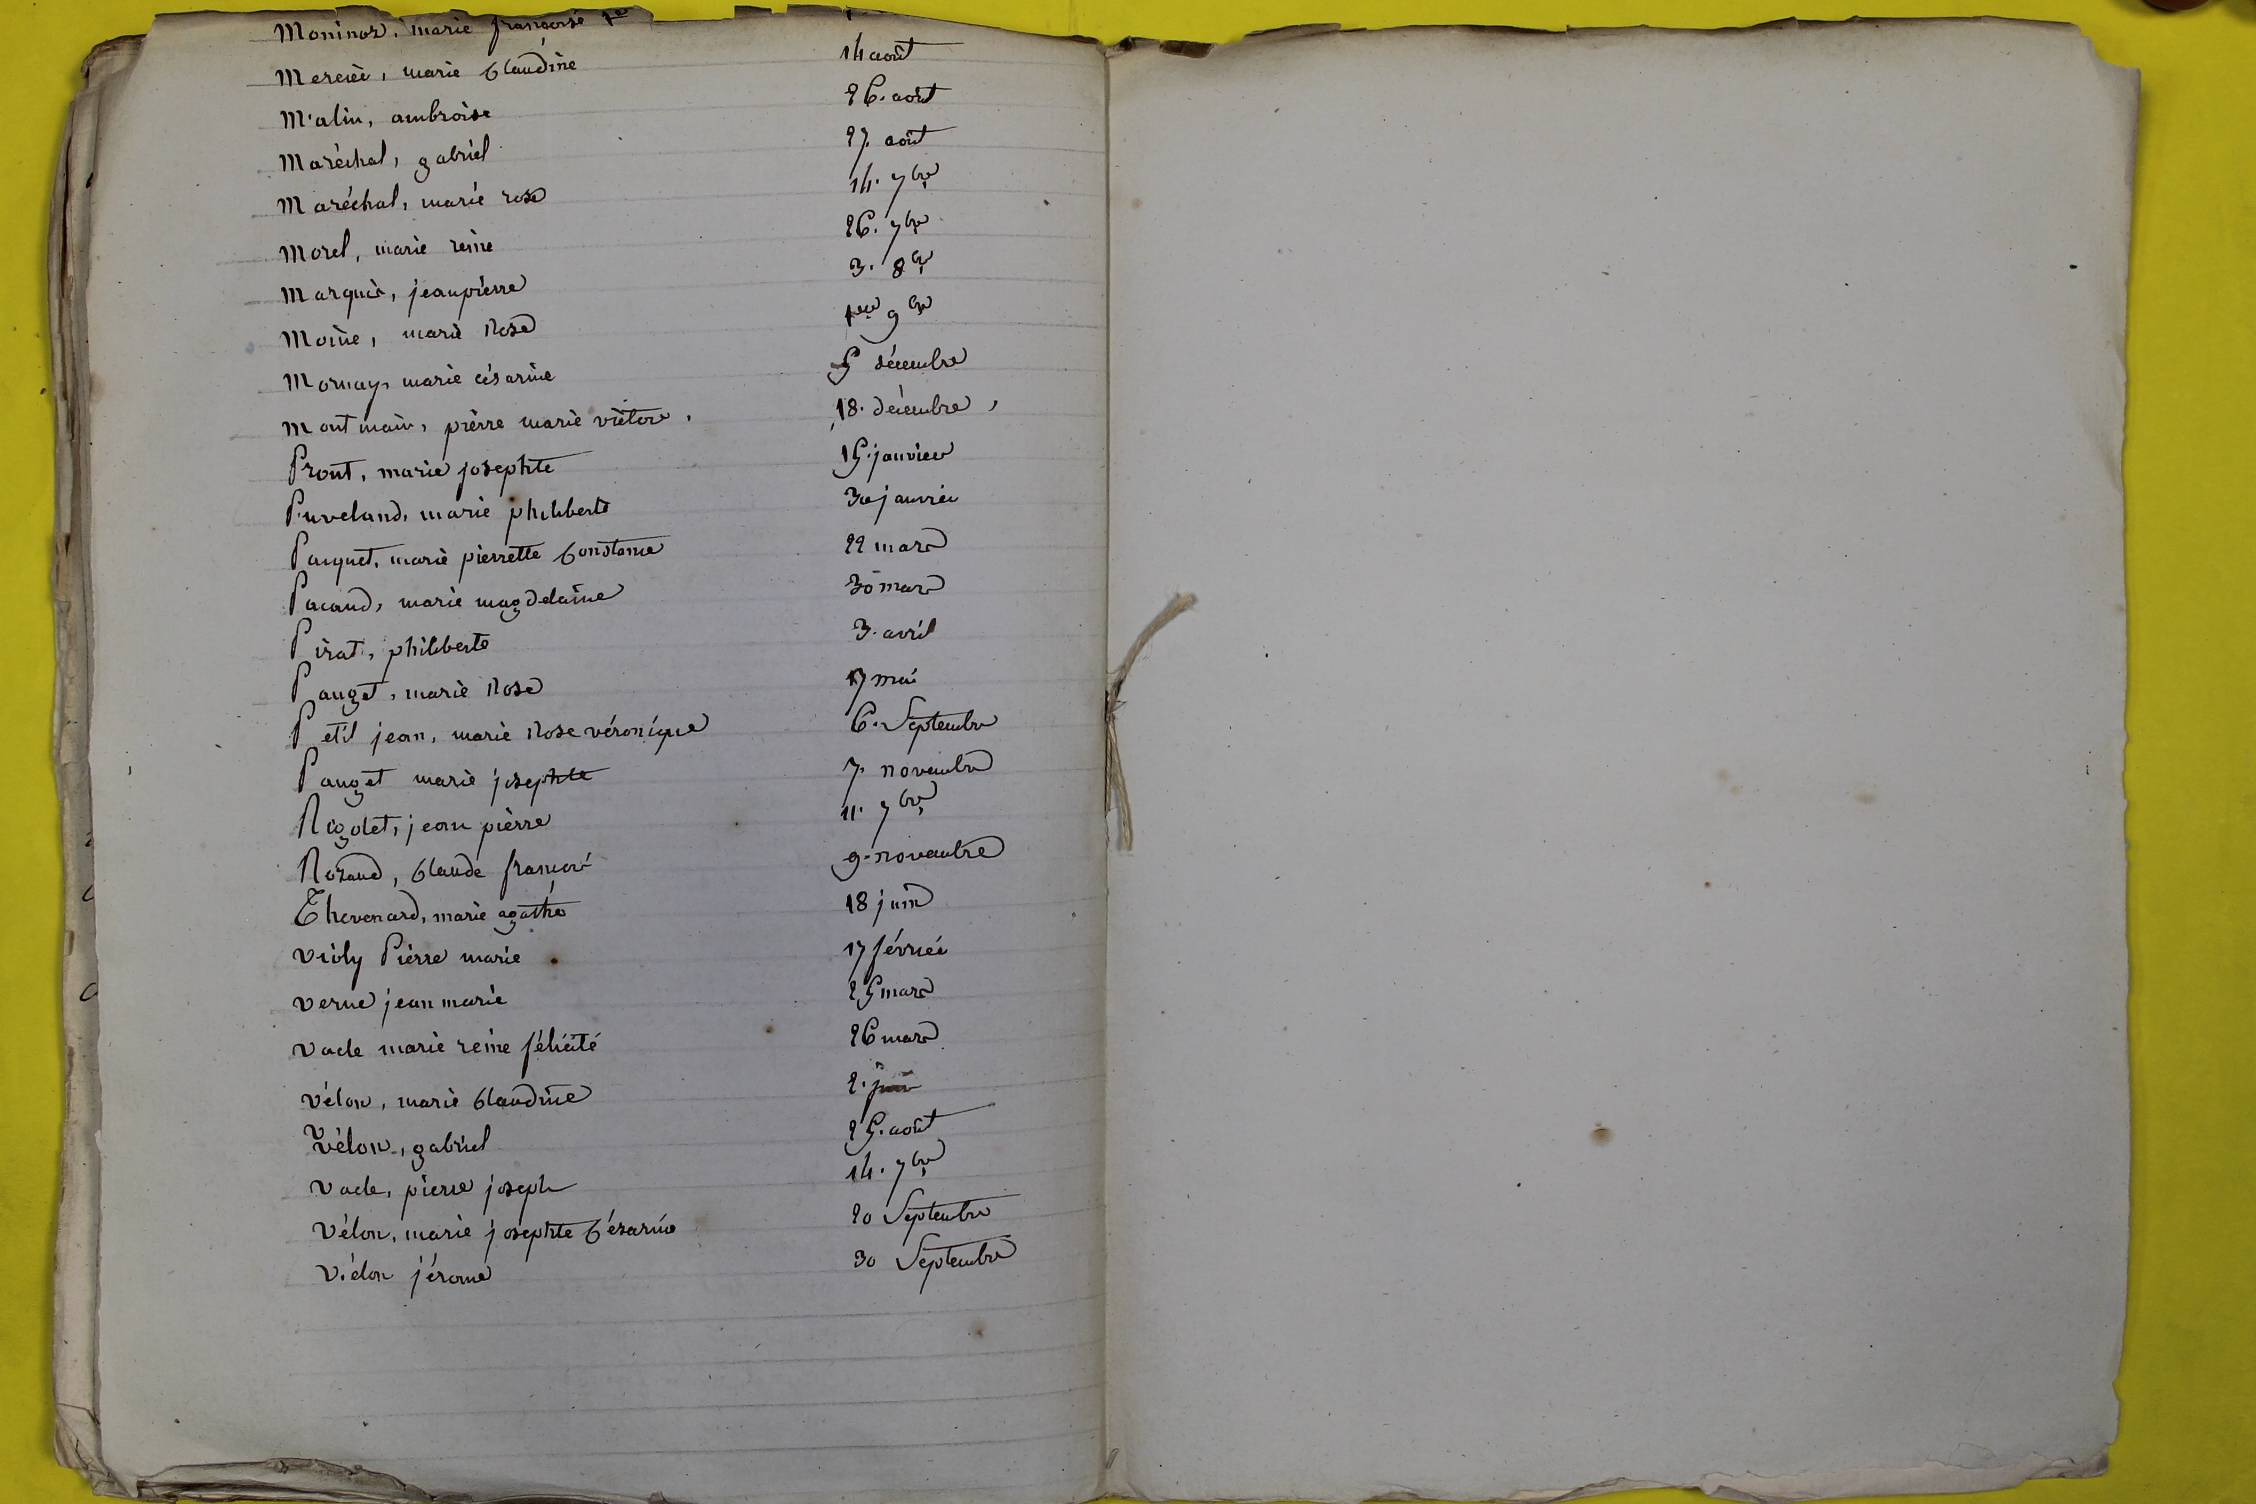 Moninot, marie françoise
Mercié, marie Claudine 14 août
Malin, ambroise 26. août
Maréchal, gabriel 27. août
Maréchal, marie rose 14. 7bre
Morel, marie reine 26. 7bre
Marquis, jeanpierre 3. 8bre
Moine, marie Rose 1er 9bre
Mornay, marie césarine 5 décembre
Montmain, pierre marie victore, 18. décembre,
Pront, marie josephte 15. janvier
Puveland, marie philiberte 30 janvier
Pauquet, marie pierrette Constance 22 mars
Pacaud, marie magdelaine 30 mars
Pirat, philiberte 3. avril
Pauget, marie Rose 17 mai
Petit jean, marie Rose véronique 6. Septembre
Pauget marie josephte 7. novembre
Rigolet, jean pierre 11. 7bre
Rozand, Claude françois 9. novembre
Thevenard, marie agathe 18 juin
violy Pierre marie 17 février
verne jean marie 25 mars
vacle marie reine félicité 26 mars
vélon, marie Claudine 2. juin
Vélon, gabriel 25. août
vacle, pierre joseph 14. 7bre
Vélon, marie josephte Césarine 20 Septembre
Vélon jérome 30 Septembre